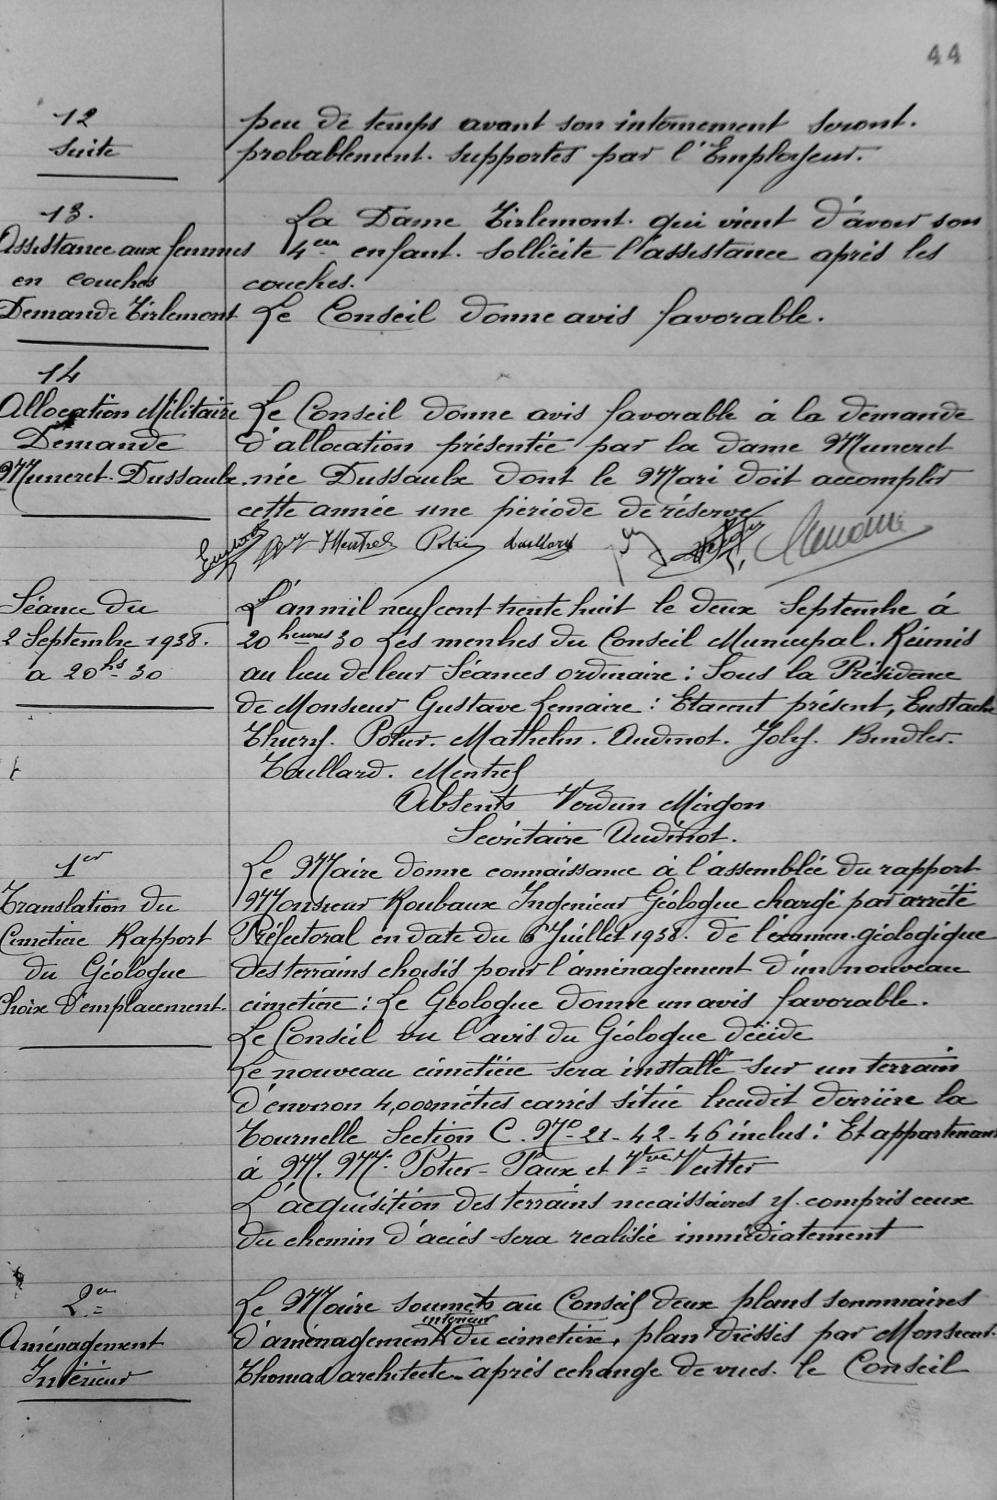 44
12
suite
peu de temps avant son internement seront.
probablement. supportés par l'Employeur.
13.
Assistance aux femmes
en couches
Demande Tirlemont
La Dame Tirlemont. qui vient d'avoir son
4em enfant. sollicite l'assistance après les
couches.
Le Conseil donne avis favorable.
14
Allocation Militaire
Demande
Muneret. Dussaulx.
Le Conseil donne avis favorable à la demande
d'allocation présentée par la dame Muneret
née Dussaulx dont le Mari doit accomplir
cette année une période de réserve
Mentrel Potier Taillard Lemaire
Séance du
2 Septembre 1938.
a 20hs 30
L'an mil neuf cent trente huit le deux Septembre à
20 heures 30 Les menbres du Conseil Municipal. Réunis
au lieu de leur Séances ordinaire : Sous la Présidance
de Monsieur Gustave Lemaire : Etaient présent, Eustache
Thierry. Potier. Mathelin. Audinot. Joly. Bindler.
Taillard. Mentrel
Absents Verdun Mirgon
Secrétaire Audinot.
1er
Translation du
Cimetière Rapport
du Géologue
Choix D'emplacement.
Le Maire donne connaissance à l'assemblée du rapport
Monsieur Roubaux Ingenieur Géologue chargé par arrêté
Préfectoral en date du 6 Juillet 1938. de l'examen géologique
des terrains choisis pour l'aménagement d'un nouveau
cimetière : Le Géologue donne un avis favorable.
Le Conseil vu l'avis du Géologue décide
Le nouveau cimetière sera installé sur un terrain
d'environ 4,000 mètres carrés situé lieudit derrière la
Tournelle Section C. No 21 - 42 - 46 inclus : Et appartenant
à M. M. Potier - Paux et Vve Vetter
L'acquisition des terrains necaissaires y. compris ceux
du chemin d'accès sera realisée immédiatement
2em
Aménagement
Intérieur
Le Maire soumets au Conseil deux plans sommaires
interieur
d'aménagement du cimetière, plan dressés par Monsieur.
Thomas architecte après echange de vues. le Conseil